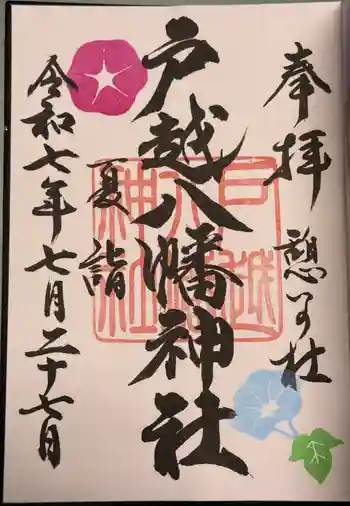 奉拝
憩の社
戸越八幡神社
夏詣
令和七年七月二十七日
戸越八幡神社